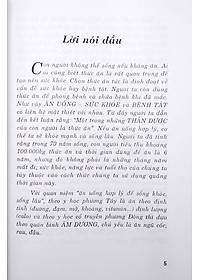 Lời nói đầu
Con người không thể sống nếu không ăn. Ai
cũng biết thức ăn là rất quan trọng để tạo
nên sức khỏe. Chọn thức ăn tức là định đoạt về
vấn đề sức khỏe hay bệnh tật. Người ta còn dùng
thức ăn để phòng bệnh và chữa bệnh khi đã mắc.
Như vậy ĂN UỐNG - SỨC KHỎE và BỆNH TẬT
có liên hệ mật thiết với nhau. Từ đây người ta dẫn
đến kết luận rằng: "Một trong những THẦN DƯỢC
của con người là thức ăn". Nếu ăn uống hợp lý, cơ
thể ta sẽ khỏe mạnh và sống lâu. Người ta tính
rằng, trong đời sống 70 năm, con người tiêu thụ khoảng
100.000kg thức ăn và thời gian dùng để ăn là 6
năm, nhưng đây không phải là những tháng năm
mất đi; sức khỏe, năng lực và tuổi thọ của chúng ta
tùy thuộc vào cách thức chúng ta sử dụng quãng
thời gian này.
Với quan niệm "ăn uống hợp lý để sống khỏe,
sống lâu", theo y học phương Tây là ăn theo định
tính (đường, đạm, mỡ, khoáng, vitamin...) định lượng
(calo) và theo y học cổ truyền phương Đông thì dựa
theo quân bình ÂM DƯƠNG, chủ yếu là ăn ngũ cốc,
rau, đậu.
5